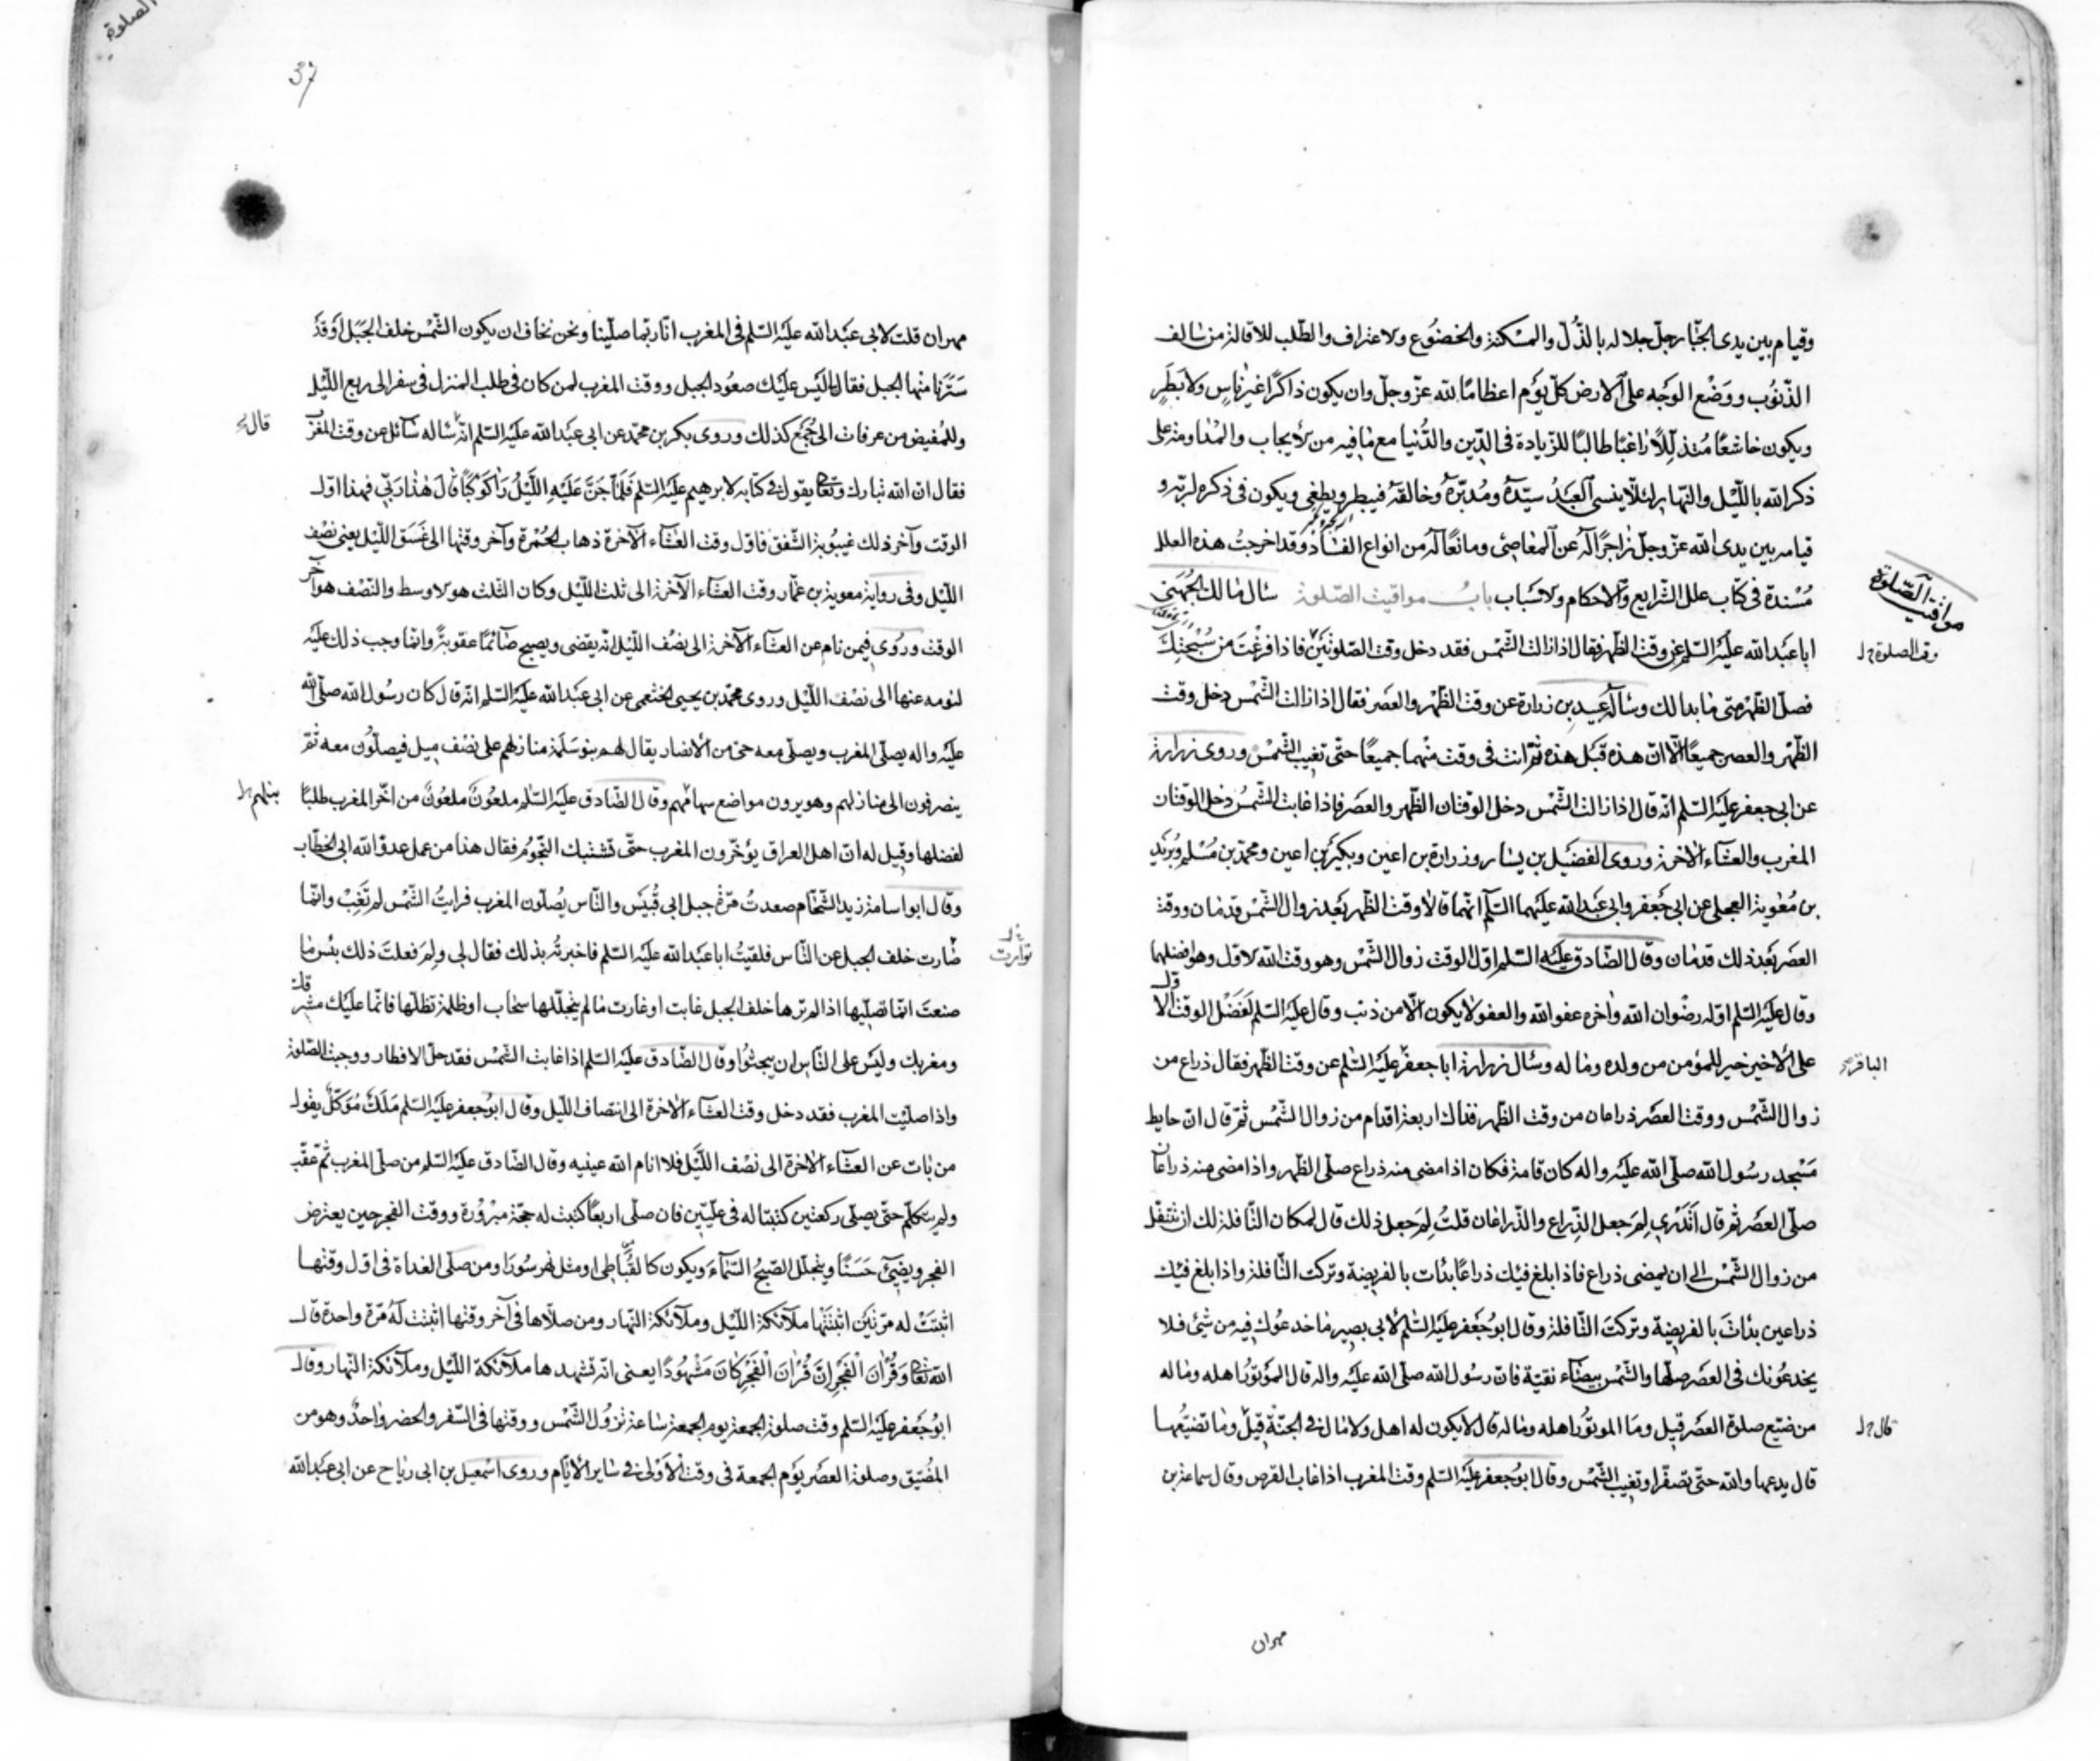 وقيام بين يدى الجبّار جلّ جلاله بالذُّلّ والمسكنة والخضُوع والاعتراف والطّلب للاقالة من سالف
الذّنوُب ووَضْع الوَجْه على الارض كلّ يوَْم اعظامًا لله عزّ وجلّ وان يكون ذاكرًا غيرَ ناسٍ ولا بَطَرٍ
ويكون خاشعًا مُتذلّلًا رَاغبًا طالبًا للزّيادة فى الدّين والدُّنيا مع مافيه من الايجاب والمُداومة على
ذكر الله باللّيْل والنّهار لئلّا ينسى العَبْدُ سيّدَهُ ومُدبّرَهُ وخالقَهُ فيبطر ويطغى ويكون فى ذكره لربّه و
قيامه بين يدى الله عزّ وجلّ زاجرًا لَهُ عن المعَاصِى ومانعًا لَهُ من انواع الفسَاد وقد اخرجتُ هذه العلل
مُسْندة فى كتاب علل الشّرايع والاحكام والاسْبَاب بابُ مواقيت الصّلوة سَال مالك الجُهَنى
اباعَبْدالله عليَْه السّلم عن وقت الظّهر فقال اذا زالت الشّمْس فقد دخل وقت الصّلوتيَْن فاذا فرغْتَ من سُبْحتِكَ
فصلّ الظّهْر متى مابدا لك وسَأله عبيد بن زرارة عن وقت الظّهْر والعصَر فقال اذا زالت الشّمْس دخل وقت
الظّهر والعصر جميعًا الّا انّ هذه قبَْل هذه ثمّ انت فى وقت منْهما جميعًا حتّى تغيب الشّمْس وروى زرارة
عن ابى جعفر عليَْه السّلم انّه قال اذا زالت الشّمْس دخل الوقتان الظّهر والعصَر فاذا غابت الشّمسُ دخل الوقتان
المغرب والعشاء الآخرة وروى الفضيَْل بن يسَار وزرارة بن اعين وبكيَْر بن اعين ومحمّد بن مُسْلم وبُرَيْد
بن مُعٰوية العجلى عن ابى جَعفر وابى عَبْدالله عليَْهما السّلٰم انّهما قالا وقت الظّهر بعَْد زوال الشّمْس قدمان ووقت
العصَر بَعْد ذلك قدمان وقال الصّادق عليَْه السّلم اوّل الوقت زوال الشّمْس وهو وقت الله الاوّل وهو افضلهما
وقال عليَْه السّلم اوّله رضْوان الله واخره عفو الله والعفو لا يكون الّا من ذنب وقال عليَْه السّلم لَفَضْل الوقت الاوّل
على الاخير خير للمؤمن من ولده وماله وسَال زرارة اباجعفر عليَْه السّلم عن وقت الظّهر فقال ذراع من
زوال الشّمْس ووقت العصَر ذراعان من وقت الظّهر فذاك اربعة اقدام من زوال الشّمْس ثمّ قال انّ حايط
مَسْجد رسُول الله صلّى الله عليَْه واله كان قامة فكان اذا مضى منه ذراع صلّى الظّهر واذا مضى منه ذراعان
صلّى العصَر ثم قال اَتَدْرى لِمَ جعل الذّراع والذّراعان قلتُ لِمَ جعل ذلك قال لمكان النّافلة لك ان تتنفّل
من زوال الشّمْس الى ان يمضى ذراع فاذا بلغ فيئك ذراعًا بدأت بالفريضة وتركت النّافلة واذا بلغ فيئك
ذراعين بدأتَ بالفريضة وتركتَ النّافلة وقال ابوجَعفر عليَْه السّلم لابى بصير ما خدعوُك فيه من شئ فلا
يخدعُونك فى العصَر صلّها والشّمْس بيضاء نقيّة فانّ رسُول الله صلّى الله عليَْه واله قال الموَْتوُر اهله وماله
من ضيّع صلوة العصَر قيل ومَا الموتوُر اهله وماله قال لا يكون له اهل ولا مال فى الجنّة قيلَ وما تضييُعها
قال يدعها والله حتّى تصفرّ او تغيب الشّمْس وقال ابوُجعفر عليَْه السّلم وقت المغرب اذا غاب القرص وقال سماعة بن
مواقيت الصّلوة
وقت الصلوة خ ل
الباقر خ
قال خ ل
مهران
الصلوة
مهران قلت لابى عَبْدالله عليَْه السّلم فى المغرب انّا ربّما صلّينا ونحن نخاف ان يكون الشّمْس خلف الجَبَل اَوْ قَدْ
سَتَرَنا منْها الجبل فقال ليَْس عليَْك صعُود الجبل ووقت المغرب لمن كان فى طلب المنزل فى سفر الى ربع اللّيْل
وللمُفيض من عرفات الى جُمَع كذلك وروى بكر بن محمّد عن ابى عبَْدالله عليَْه السّلم انّه سَاله سَائل عن وقت المغرب
فقال انّ الله تبارك وتعالى يقول فى كتابه لابرٰهيم عليَْه السّلم فَلَمّا جَنَّ عَلَيْهِ اللَّيْلُ رَاٰ كَوْكَبًا قَالَ هٰذَا رَبّى فهذا اوّل
الوقت وآخر ذلك غيبُوبة الشّفق فاوّل وقت العشَاء الآخرة ذهاب الحُمْرة وآخر وقتها الى غَسَق اللّيْل يعنى نصْف
اللّيْل وفى رواية معوية بن عمّار وقت العشَاء الآخرة الى ثلث اللّيْل وكان الثّلث هو الاوسط والنّصْف هو آخر
الوقت وروُى فيمن نام عن العشَاء الآخرة الى نصْف اللّيْل انّه يقضى ويصبح صَائمًا عقوبةً وانّما وجب ذلك عليَْه
لنومه عنها الى نصْف اللّيْل وروى محمّد بن يحيى الخثعمى عن ابى عبَْدالله عليَْه السّلم انّه قال كان رسُول الله صلّى الله
عليَْه واله يصلّى المغرب ويصلّى معه حىّ من الانصار يقال لهم بنو سَلَمة منازلهم على نصْف ميل فيصلّوُن معه ثمّ
ينصرفون الى منازلهم وهم يرون مواضع سهامهم وقال الصّادق عليَْه السّلم ملعُونٌ ملعُونٌ من اخّر المغرب طلبًا
لفضلها وقيل له انّ اهل العراق يؤخّرون المغرب حتّى تشتبك النّجوُم فقال هذا من عمل عدوّ الله ابى الخطّاب
وقال ابو اسامة زيد الشّحّام صعدتُ مرّة جبل ابى قُبيَْس والنّاس يُصلّون المغرب فرايتُ الشّمْس لم تَغِبْ وانّما
توارت خلف الجبل عن النّاس فلقيَْتُ اباعَبْدالله عليَْه السّلم فاخبرتُه بذلك فقال لى ولِمَ فعلتَ ذلك بئس ما
صنعتَ انّما تصلّيها اذا لم ترها خلف الجبل غابت او غارت ما لم يتجلّلها سحاب او ظلمة تظلّها فانّما عليَْك مشرقك
ومغربك وليَْس على النّاس ان يبحثُوا وقال الصّادق عليَْه السّلم اذا غابت الشّمْس فقد حلّ الافطار ووجبت الصّلوة
واذا صلّيت المغرب فقد دخل وقت العشَاء الآخرة الى انتصاف اللّيل وقال ابوُجعفر عليَْه السّلم مَلَكٌ مُوَكّلٌ يقول
من بات عن العشَاء الآخرة الى نصْف اللّيْل فلا انام الله عينيه وقال الصّادق عليَْه السّلم من صلّى المغرب ثم عقّب
ولم يتكلّم حتّى يصلّى ركعتين كتبتا له فى علّيّين فان صلّى اربعًا كتبت له حجّة مبْروُرة ووقت الفجر حين يعترض
الفجر ويضيئ حَسَنًا ويتجلّل الصّبحُ السّماءَ ويكون كالقُباطى او مثل نهر سُورَا ومن صلّى الغداة فى اوّل وقتها
اثبتَتْ له مرّتيَْن اثبتَتْها ملآئكة اللّيْل وملآئكة النّهار ومن صلّاها فى آخر وقتها اثبتت لَهُ مرّة واحدة قال
الله تعالى وَقُرْاٰنَ الْفَجْرِ اِنَّ قُرْاٰنَ الْفَجْرِ كَانَ مَشْهُودًا يعنى انّه تشهدها ملآئكة اللّيْل وملآئكة النّهار وقال
ابوُجَعفر عليَْه السّلم وقت صلوة الجمعة يوم الجمعة سَاعة تزوُل الشّمْس ووقتها فى السّفر والحضر واحدٌ وهو من
المُضَيّق وصلوة العصَر يوَْم الجمعة فى وقت الاوْلى فى سَاير الايّام وروى اسْمٰعيل بن ابى رباح عن ابى عبَْدالله
توارت